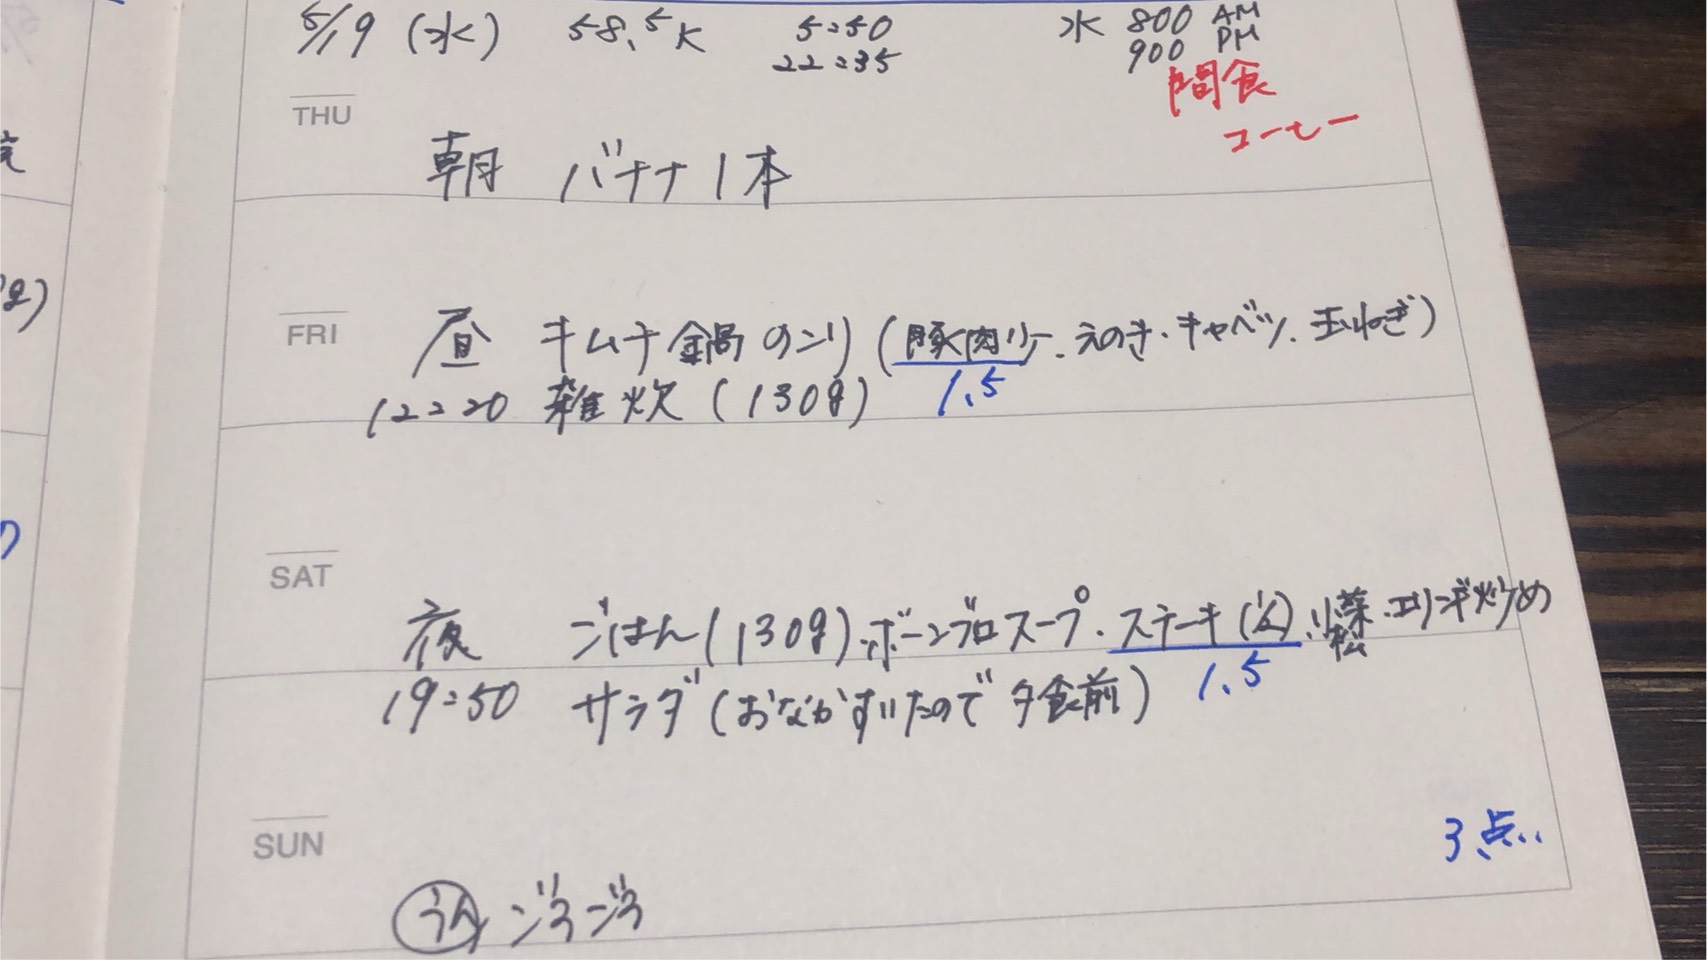 5/19 (水) 58.5K 5:50 水 800 AM
22:35 900 PM
間食
コーヒー
THU
朝 バナナ1本
FRI
昼 キムチ鍋のこり(豚肉少、えのき・キャベツ、玉ねぎ)
12:20 雑炊(130g) 1.5
SAT
夜 ごはん(130g)、ボーンブロスープ・ステーキ(½)、小松菜・エリンギ炒め
19:50 サラダ(おなかすいたので夕食前) 1.5
SUN
3点..
うん ジョージョ